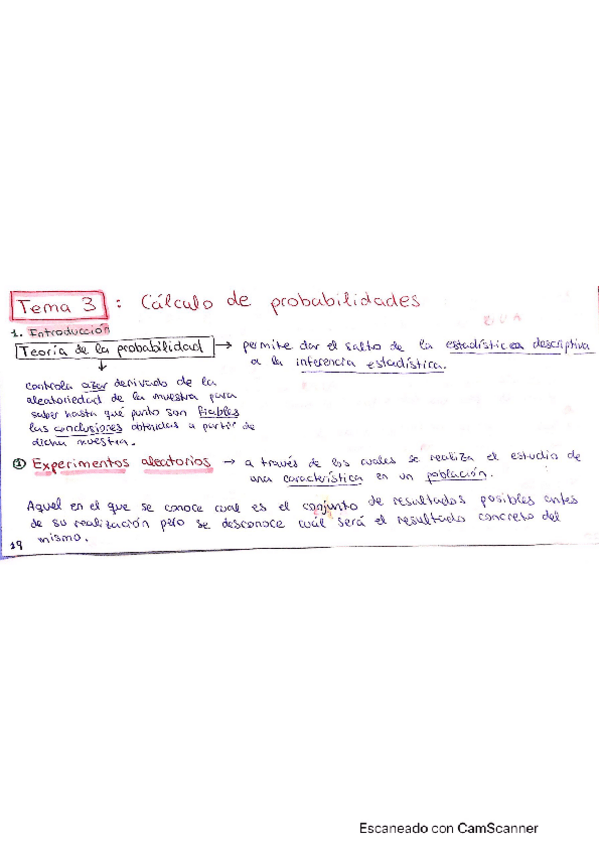 Tema 3 : Cálculo de probabilidades
1. Introducción
Teoría de la probabilidad → permite dar el salto de la estadística descriptiva
a la inferencia estadística.
↓
controla azar derivado de la
aleatoriedad de la muestra para
saber hasta qué punto son fiables
las conclusiones obtenidas a partir de
dicha muestra.
① Experimentos aleatorios → a través de los cuales se realiza el estudio de
una característica en un población.
Aquel en el que se conoce cual es el conjunto de resultados posibles antes
de su realización pero se desconoce cuál será el resultado concreto del
mismo.
19
Escaneado con CamScanner